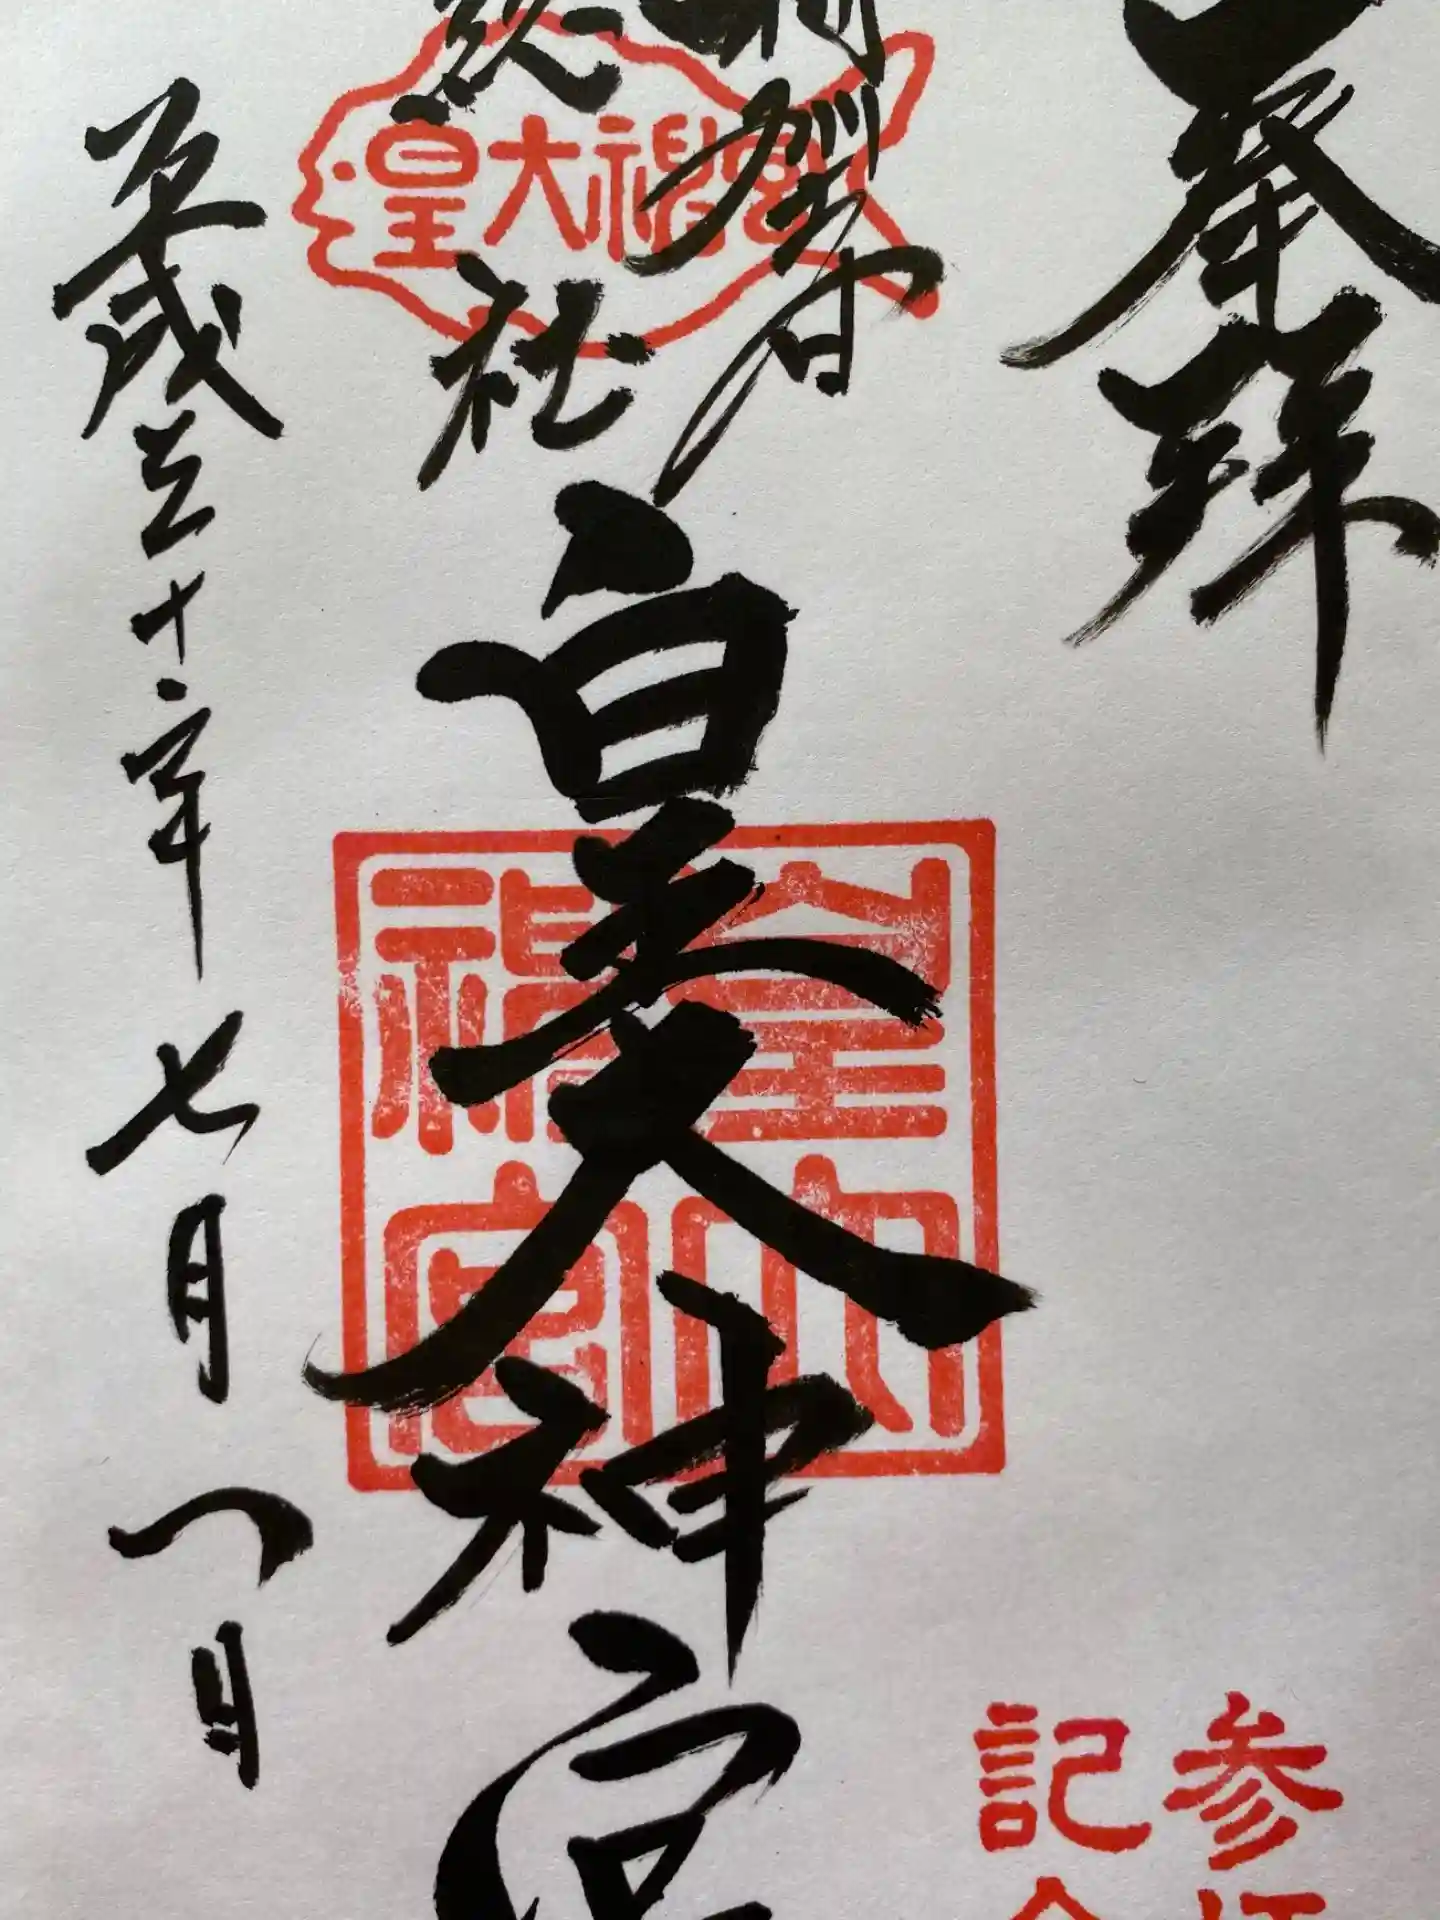 奉拜
加春
社
皇大神宮
平成三十年七月一日
皇大神宮
皇大神宮
参拝
記念